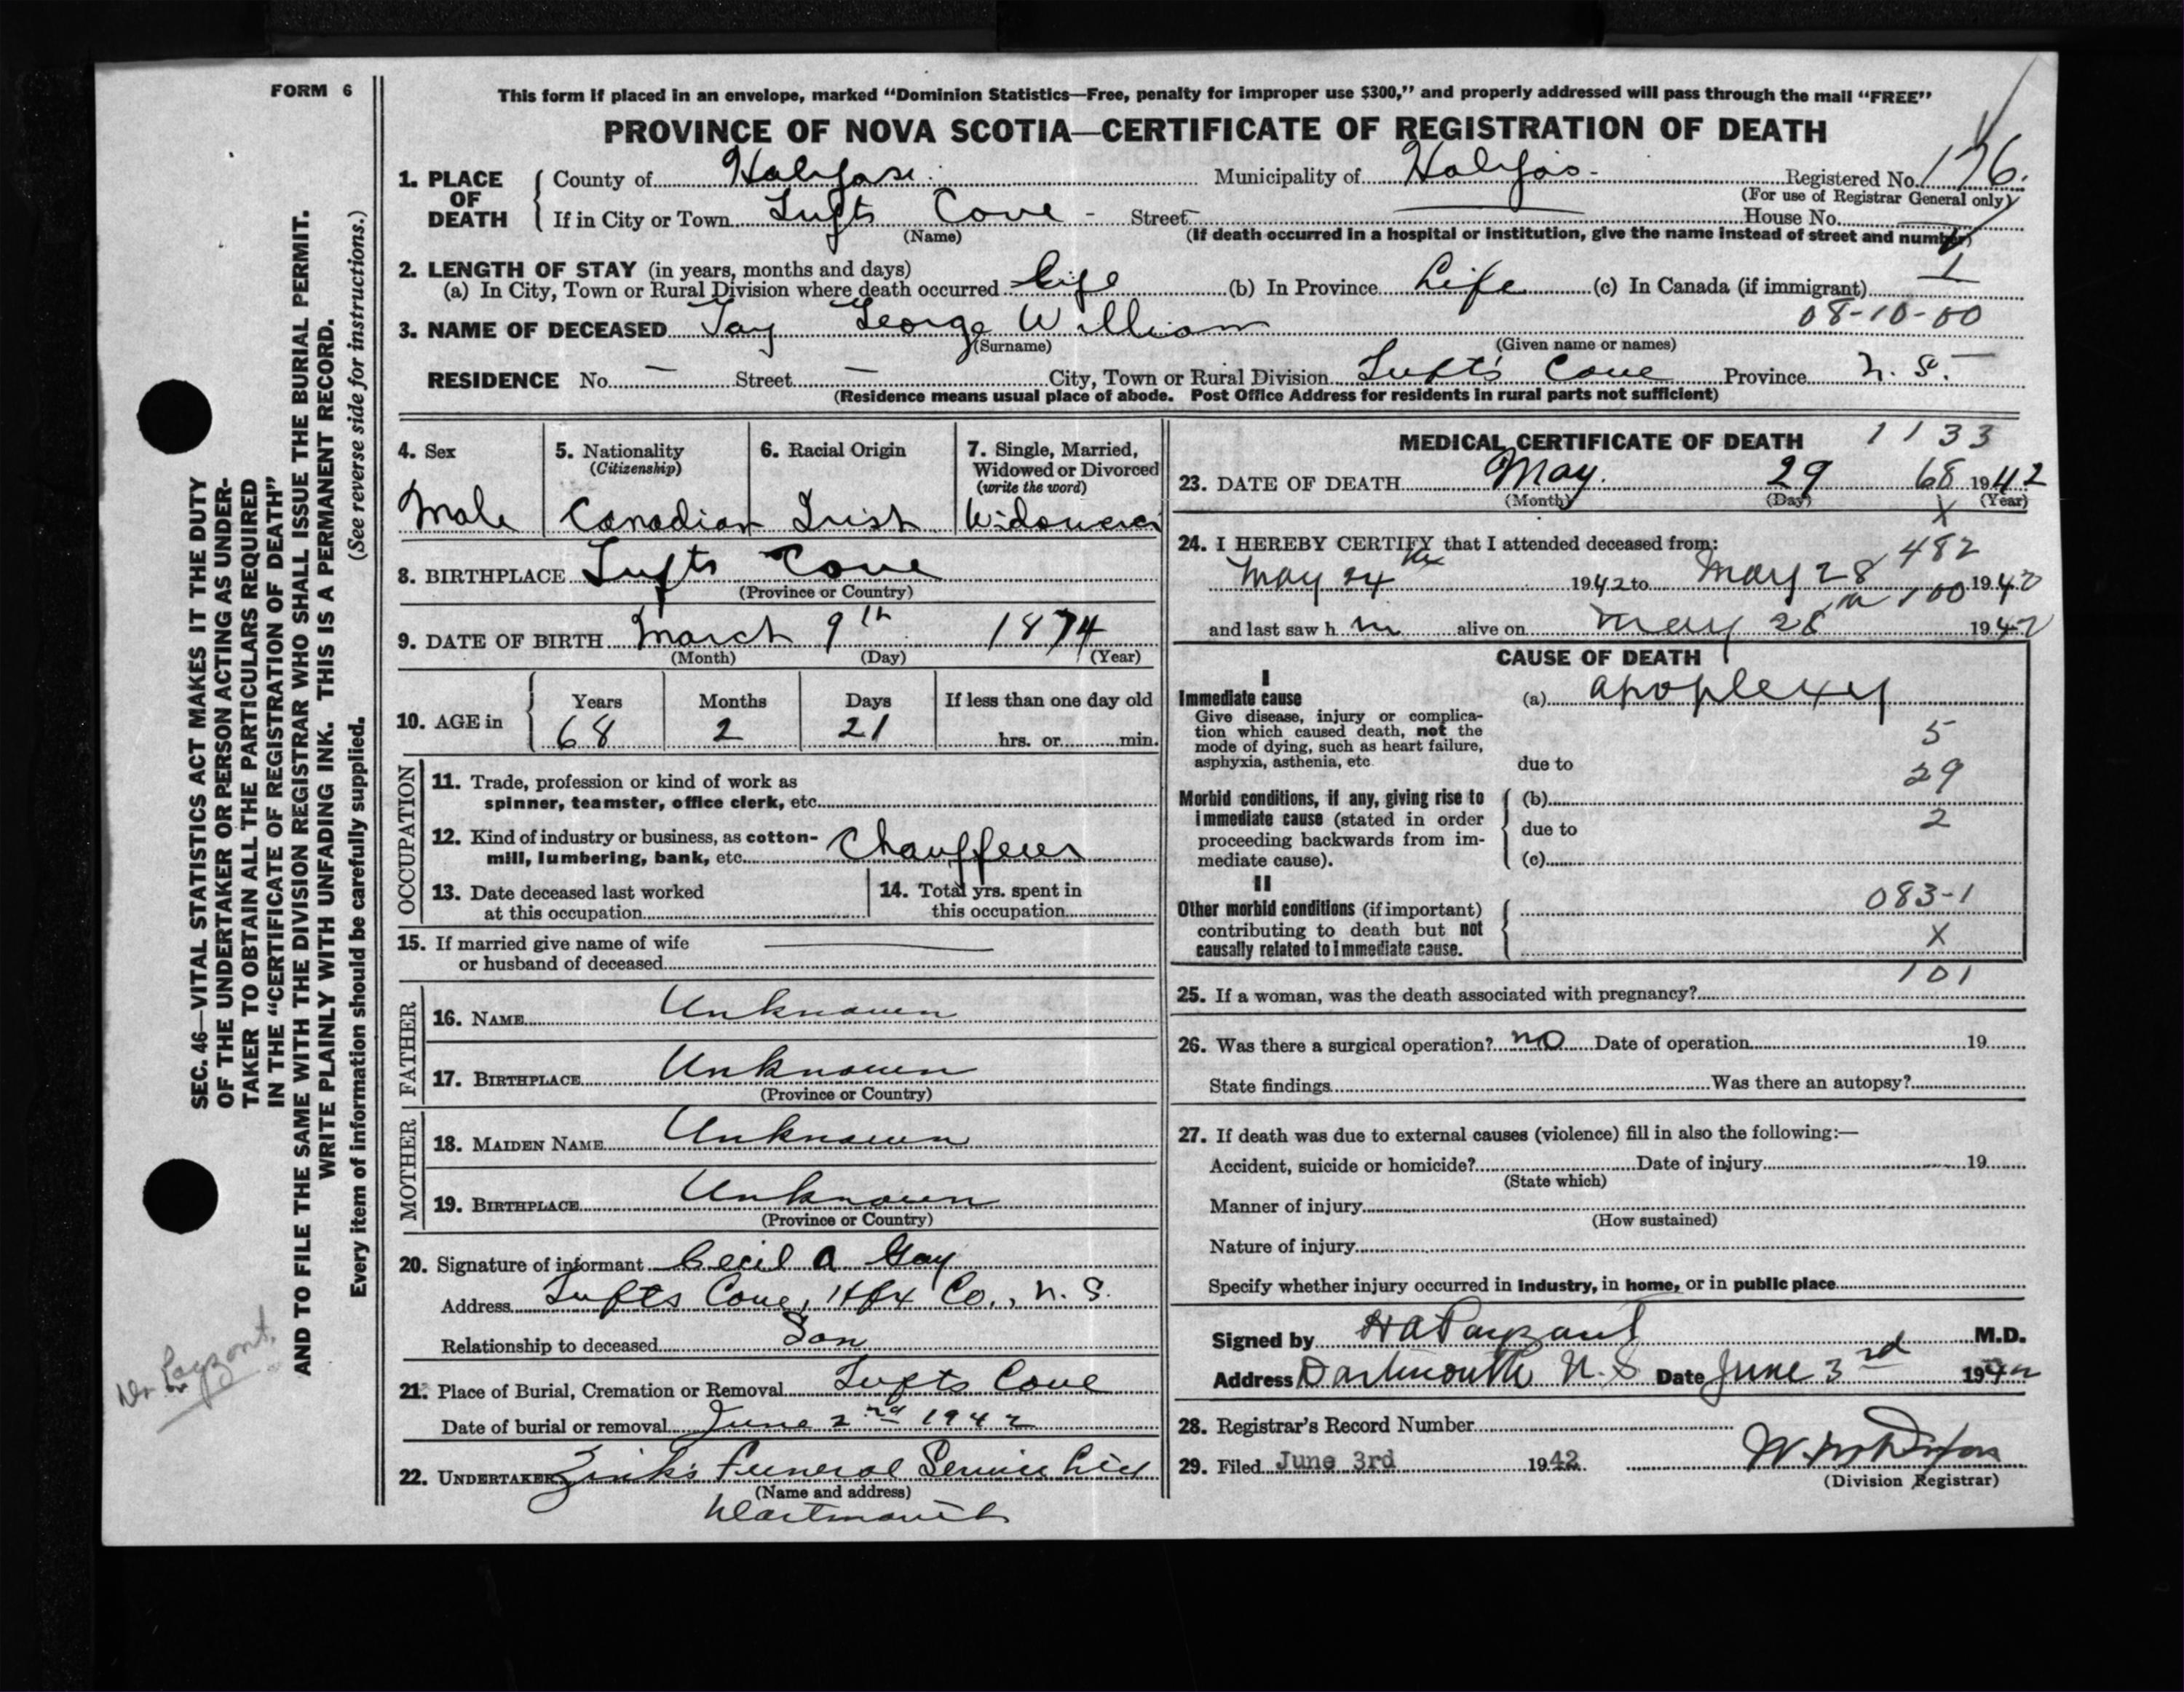 FORM 6
This form if placed in an envelope, marked “Dominion Statistics—Free, penalty for improper use $300,” and properly addressed will pass through the mail “FREE”
PROVINCE OF NOVA SCOTIA—CERTIFICATE OF REGISTRATION OF DEATH
1. PLACE OF DEATH County of Halifax Municipality of Halifax Registered No. 176.
(For use of Registrar General only)
If in City or Town Tufts Cove - Street House No.
(Name) (If death occurred in a hospital or institution, give the name instead of street and number)
2. LENGTH OF STAY (in years, months and days) 1
(a) In City, Town or Rural Division where death occurred Life (b) In Province Life (c) In Canada (if immigrant)
08-10-00
3. NAME OF DECEASED George William
(Surname) (Given name or names)
RESIDENCE No. — Street — City, Town or Rural Division Tuft's Cove Province N. S.
(Residence means usual place of abode. Post Office Address for residents in rural parts not sufficient)
4. Sex 5. Nationality (Citizenship) 6. Racial Origin 7. Single, Married, Widowed or Divorced (write the word)
Male Canadian Irish Widower
8. BIRTHPLACE Tufts Cove
(Province or Country)
9. DATE OF BIRTH March 9th 1874
(Month) (Day) (Year)
10. AGE in Years Months Days If less than one day old
68 2 21 hrs. or min.
OCCUPATION
11. Trade, profession or kind of work as
spinner, teamster, office clerk, etc.
12. Kind of industry or business, as cotton-
mill, lumbering, bank, etc. Chauffeur
13. Date deceased last worked
at this occupation
14. Total yrs. spent in
this occupation
15. If married give name of wife
or husband of deceased
FATHER
16. NAME Unknown
17. BIRTHPLACE Unknown
(Province or Country)
MOTHER
18. MAIDEN NAME Unknown
19. BIRTHPLACE Unknown
(Province or Country)
20. Signature of informant Cecil A Gay
Address Tufts Cove, Hfx Co., N. S.
Relationship to deceased Son
21. Place of Burial, Cremation or Removal Tufts Cove
Date of burial or removal June 2nd 1942
22. UNDERTAKER Zink's Funeral Service
(Name and address)
Dartmouth
MEDICAL CERTIFICATE OF DEATH 1133
23. DATE OF DEATH May. 29 68 1942
(Month) (Day) (Year)
X
24. I HEREBY CERTIFY that I attended deceased from:
482
May 24th 1942 to May 28 1942
100
and last saw h m alive on May 28th 1942
CAUSE OF DEATH
I
Immediate cause (a) apoplexy
Give disease, injury or complica-
tion which caused death, not the
mode of dying, such as heart failure,
asphyxia, asthenia, etc.
5
due to
29
Morbid conditions, if any, giving rise to (b)
immediate cause (stated in order
proceeding backwards from im-
mediate cause).
2
due to
(c)
II
Other morbid conditions (if important)
contributing to death but not
causally related to immediate cause.
083-1
X
101
25. If a woman, was the death associated with pregnancy?
26. Was there a surgical operation? no Date of operation 19
State findings Was there an autopsy?
27. If death was due to external causes (violence) fill in also the following:—
Accident, suicide or homicide? Date of injury 19
(State which)
Manner of injury
(How sustained)
Nature of injury
Specify whether injury occurred in industry, in home, or in public place
Signed by H A Payzant M.D.
Address Dartmouth N. S Date June 3rd 1942
28. Registrar's Record Number
29. Filed June 3rd 1942
(Division Registrar)
SEC. 46—VITAL STATISTICS ACT MAKES IT THE DUTY
OF THE UNDERTAKER OR PERSON ACTING AS UNDER-
TAKER TO OBTAIN ALL THE PARTICULARS REQUIRED
IN THE “CERTIFICATE OF REGISTRATION OF DEATH”
AND TO FILE THE SAME WITH THE DIVISION REGISTRAR WHO SHALL ISSUE THE BURIAL PERMIT.
WRITE PLAINLY WITH UNFADING INK. THIS IS A PERMANENT RECORD.
Every item of information should be carefully supplied. (See reverse side for instructions.)
Dr Payzant.